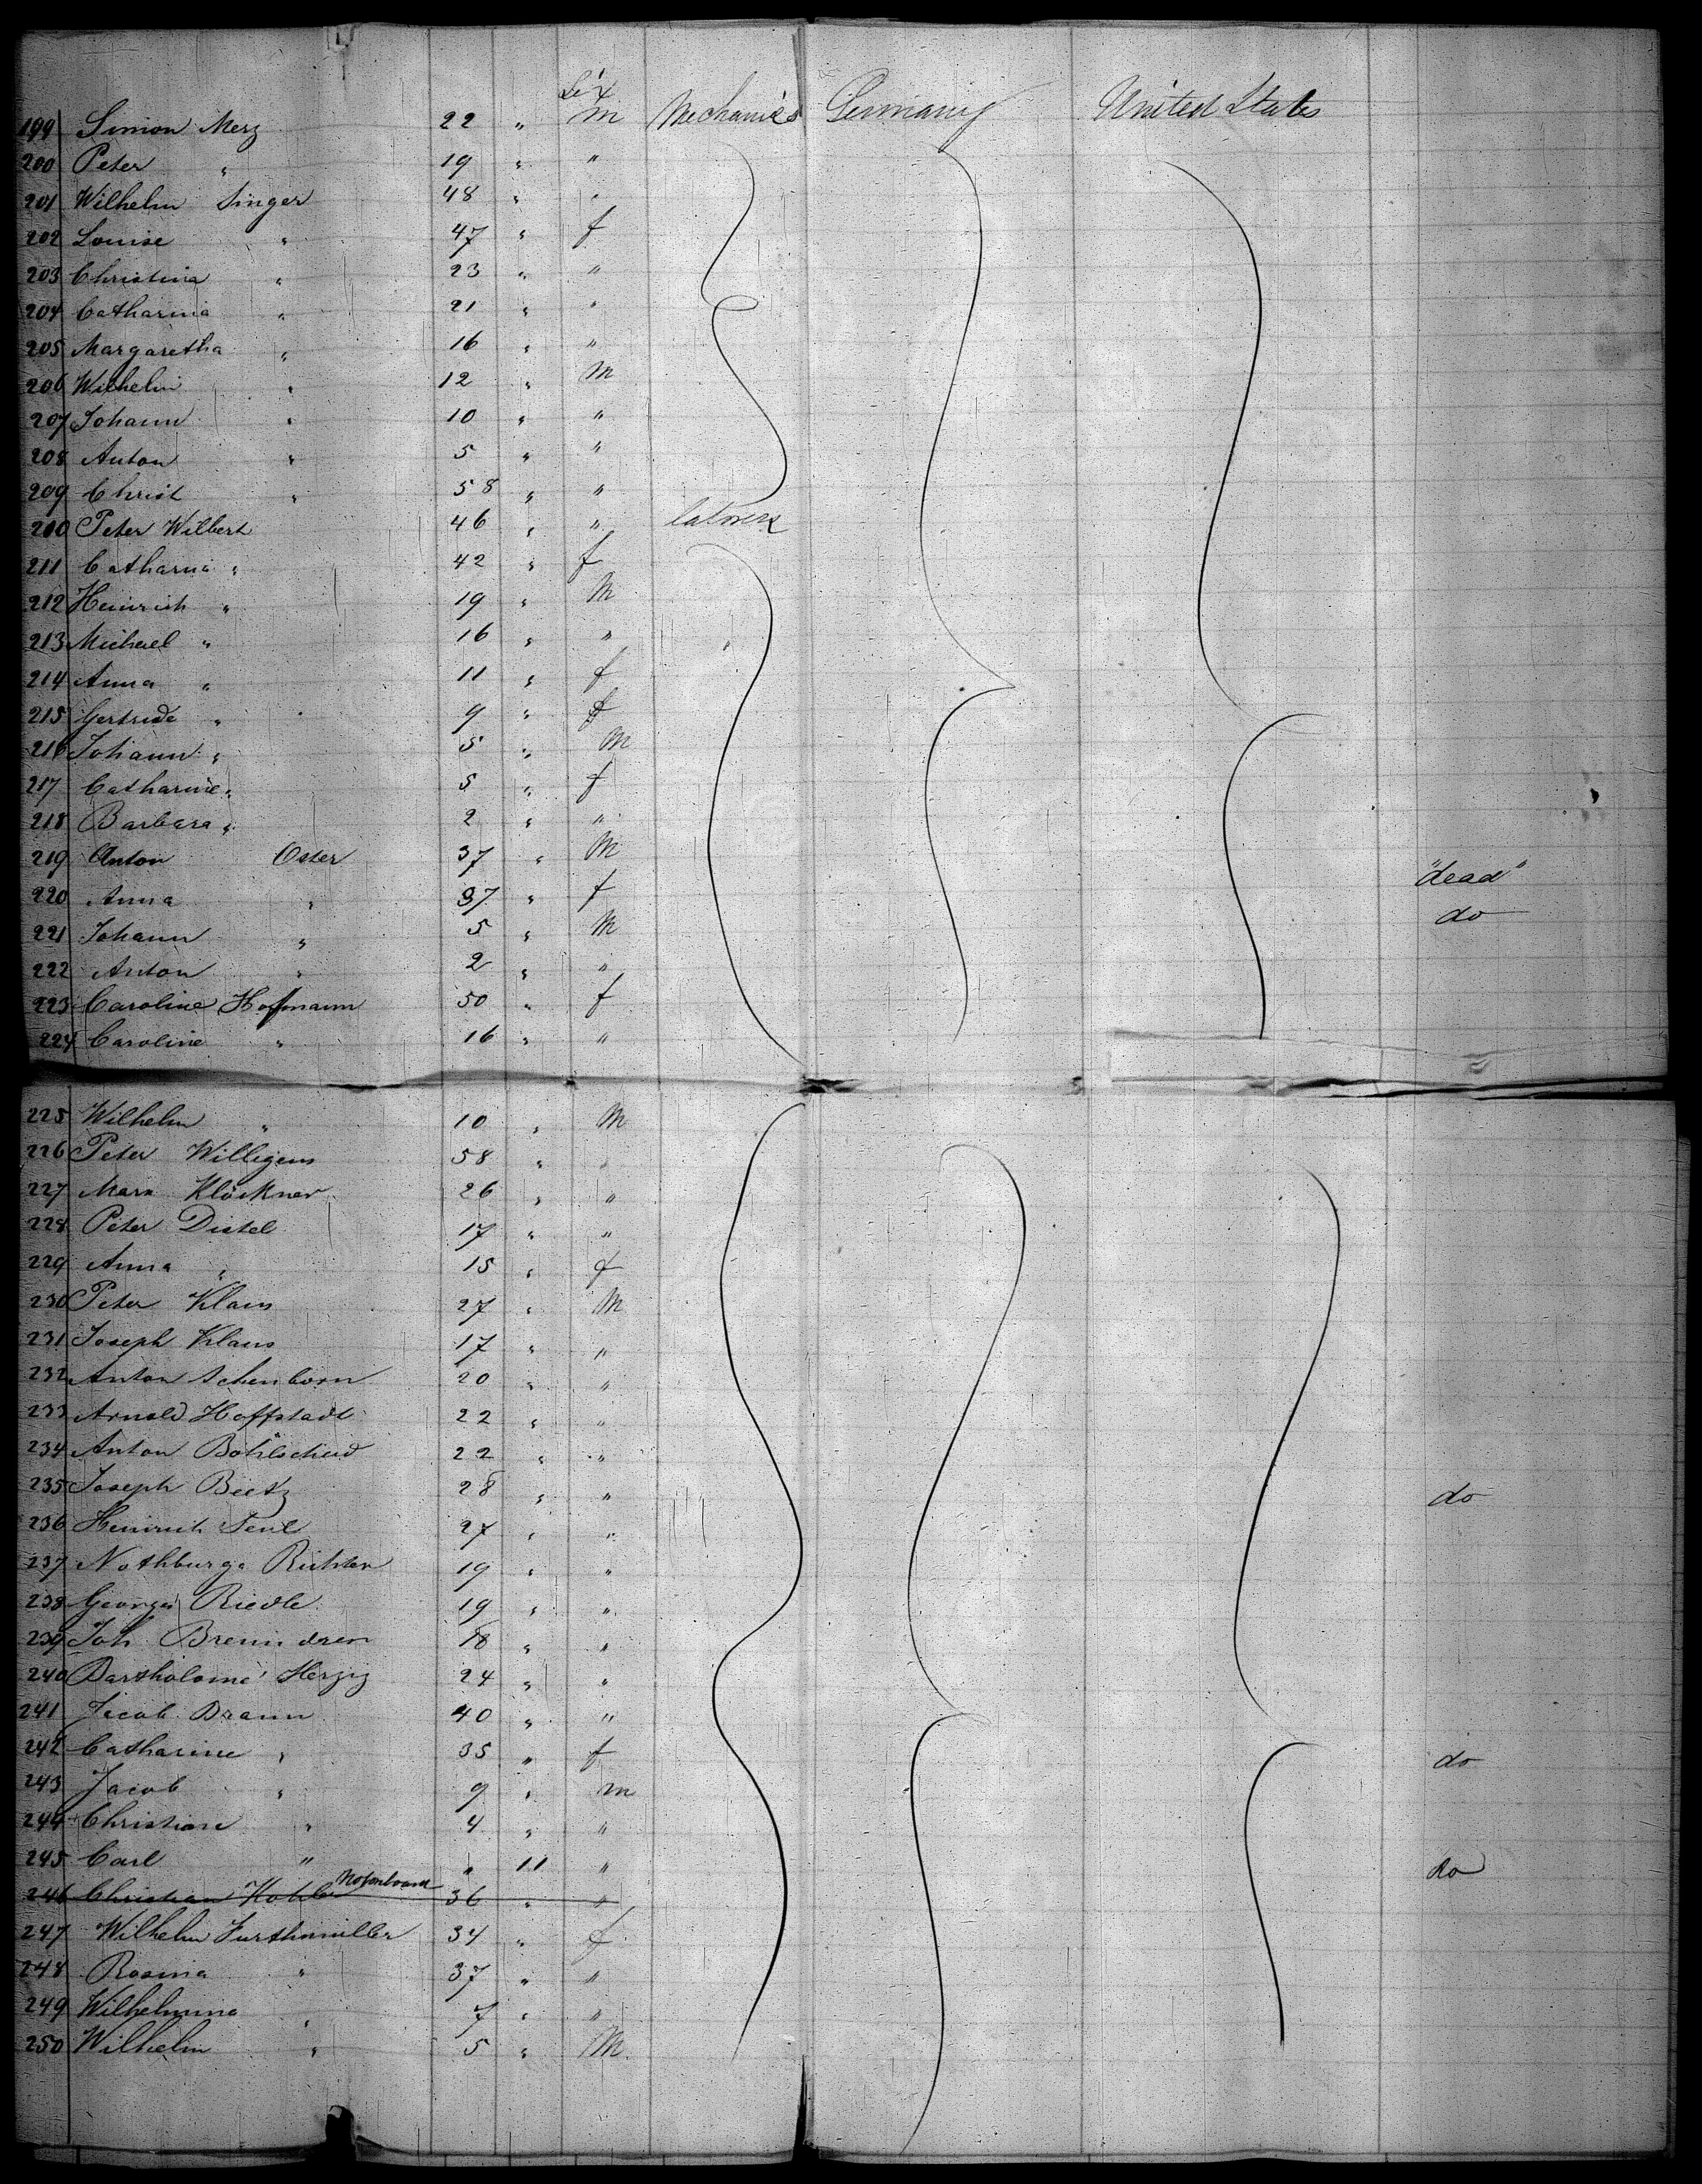 Sex
199 Simon Merz 22 " m Mechanics Germany United States
200 Peter " 19 " "
201 Wilhelm Singer 48 " "
202 Louise " 47 " f
203 Christina " 23 " "
204 Catharina " 21 " "
205 Margaretha " 16 " "
206 Wilhelm " 12 " M
207 Johann " 10 " "
208 Anton " 5 " "
209 Christ " 58 " "
210 Peter Wilbert 46 " " laborers
211 Catharina " 42 " f
212 Heinrich " 19 " M
213 Michael " 16 " "
214 Anna " 11 " f
215 Gertrude " 9 " f
216 Johann " 5 " M
217 Catharine " 5 " f
218 Barbara " 2 " "
219 Anton Oster 37 " M "dead"
220 Anna " 37 " f do
221 Johann " 5 " M
222 Anton " 2 " "
223 Caroline Hoffmann 50 " f
224 Caroline " 16 " "
225 Wilhelm " 10 " M
226 Peter Willigens 58 " "
227 Marx Klöckner 26 " "
228 Peter Distel 17 " "
229 Anna " 15 " f
230 Peter Klaus 27 " M
231 Joseph Klaus 17 " "
232 Anton Schenborn 20 " "
233 Arnold Hoffstadt 22 " "
234 Anton Böhlscheid 22 " "
235 Joseph Beetz 28 " " do
236 Heinrich 27 " "
237 Nothburga Richter 19 " "
238 Georges Riedle 19 " "
239 Joh. 18 " "
240 Bartholomé Herzig 24 " "
241 Jacob Braun 40 " "
242 Catharine " 35 " f do
243 Jacob " 9 " m
244 Christian " 4 " "
245 Carl " " 11 " do
246 Christian Kohler Not on board 36 " "
247 Wilhelm Furthmüller 34 " f
248 Rosina " 37 " "
249 Wilhelmina " 7 " "
250 Wilhelm " 5 " M